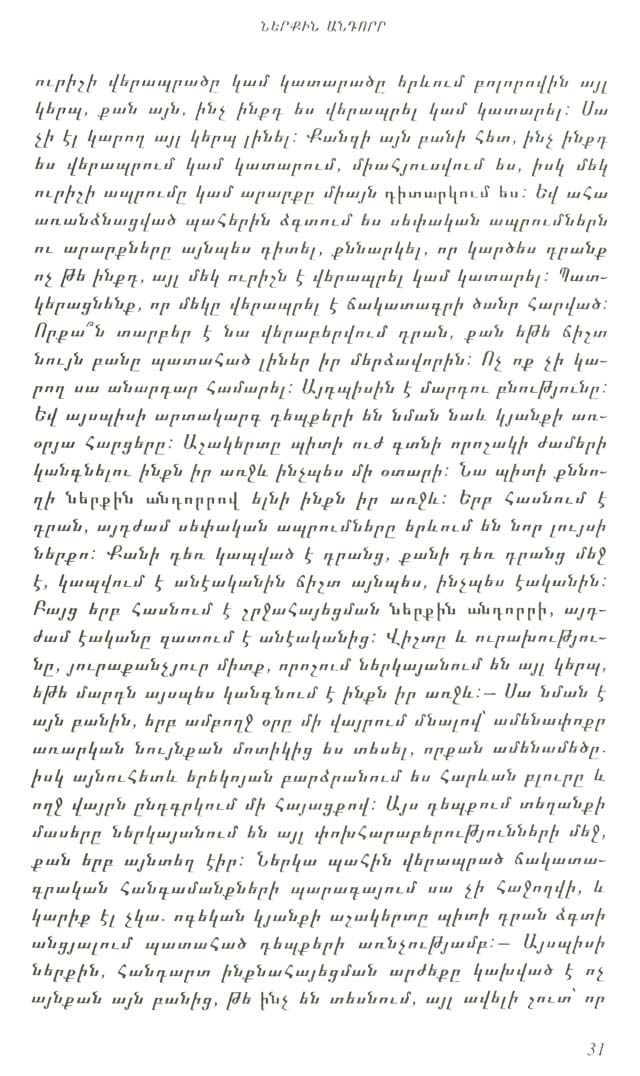 ՆԵՐՔԻՆ ԱՆԴՈՐՐ
ուրիշի վերապրածը կամ կատարածը երևում բոլորովին այլ
կերպ, քան այն, ինչ ինքդ ես վերապրել կամ կատարել։ Սա
չի էլ կարող այլ կերպ լինել։ Քանզի այն բանի հետ, ինչ ինքդ
ես վերապրում կամ կատարում, միահյուսվում ես, իսկ մեկ
ուրիշի ապրումը կամ արարքը միայն դիտարկում ես։ Եվ ահա
առանձնացված պահերին ձգտում ես սեփական ապրումներն
ու արարքները այնպես դիտել, քննարկել, որ կարծես դրանք
ոչ թե ինքդ, այլ մեկ ուրիշն է վերապրել կամ կատարել։ Պատ-
կերացնենք, որ մեկը վերապրել է ճակատագրի ծանր հարված։
Որքա՞ն տարբեր է նա վերաբերվում դրան, քան եթե ճիշտ
նույն բանը պատահած լիներ իր մերձավորին։ Ոչ ոք չի կա-
րող սա անարդար համարել։ Այդպիսին է մարդու բնությունը։
Եվ այսպիսի արտակարգ դեպքերի են նման նաև կյանքի առ-
օրյա հարցերը։ Աշակերտը պիտի ուժ գտնի որոշակի ժամերի
կանգնելու ինքն իր առջև ինչպես մի օտարի։ Նա պիտի քննո-
ղի ներքին անդորրով ելնի ինքն իր առջև։ Երբ հասնում է
դրան, այդժամ սեփական ապրումները երևում են նոր լույսի
ներքո։ Քանի դեռ կապված է դրանց, քանի դեռ դրանց մեջ
է, կապվում է անէականին ճիշտ այնպես, ինչպես էականին։
Բայց երբ հասնում է շրջահայեցման ներքին անդորրի, այդ-
ժամ էականը զատում է անէականից։ Վիշտը և ուրախությու-
նը, յուրաքանչյուր միտք, որոշում ներկայանում են այլ կերպ,
եթե մարդն այսպես կանգնում է ինքն իր առջև։— Սա նման է
այն բանին, երբ ամբողջ օրը մի վայրում մնալով՝ ամենափոքր
առարկան նույնքան մոտիկից ես տեսել, որքան ամենամեծը.
իսկ այնուհետև երեկոյան բարձրանում ես հարևան բլուրը և
ողջ վայրն ընդգրկում մի հայացքով։ Այս դեպքում տեղանքի
մասերը ներկայանում են այլ փոխհարաբերությունների մեջ,
քան երբ այնտեղ էիր։ Ներկա պահին վերապրած ճակատա-
գրական հանգամանքների պարագայում սա չի հաջողվի, և
կարիք էլ չկա. ոգեկան կյանքի աշակերտը պիտի դրան ձգտի
անցյալում պատահած դեպքերի առնչությամբ։— Այսպիսի
ներքին, հանդարտ ինքնահայեցման արժեքը կախված է ոչ
այնքան այն բանից, թե ինչ են տեսնում, այլ ավելի շուտ՝ որ
31